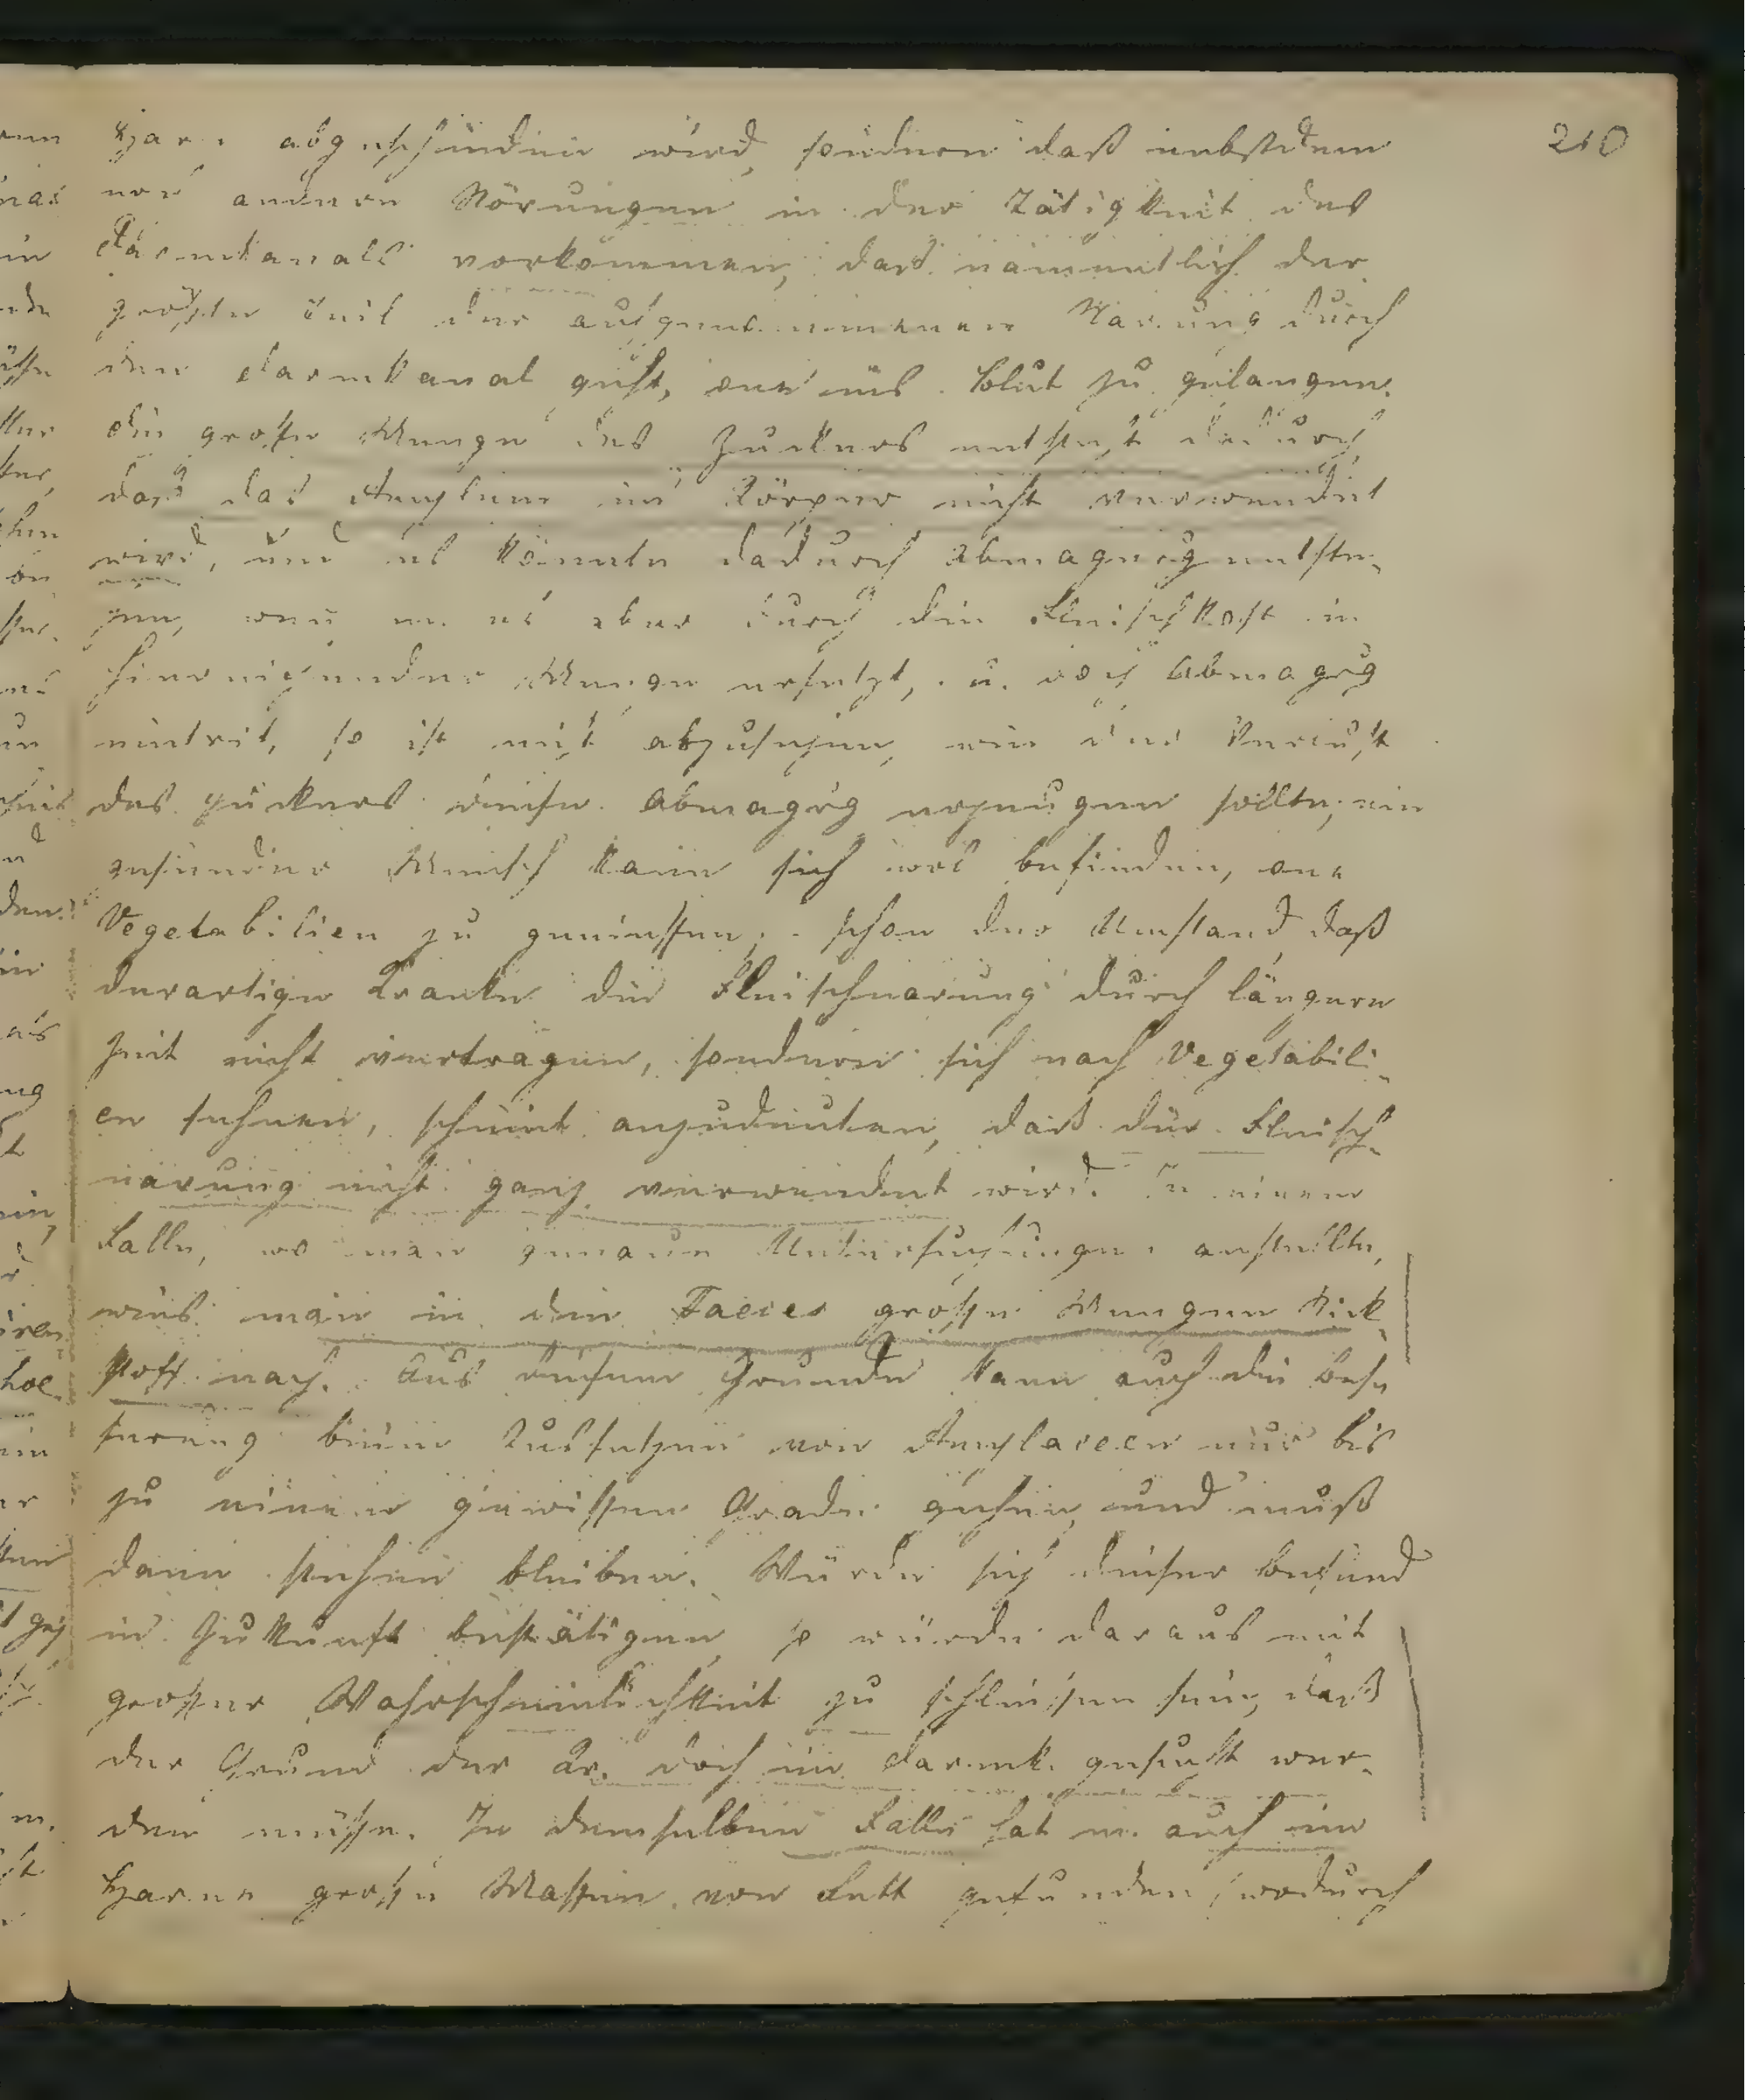 210
Harn abgeschieden wird, sondern daß unbestimt
noch andere Störungen in der Tätigkeit des
Darmkanals vorkommen, das nämmtlich der
größte Teil der aufgenommenen Narung durch
den Darmkanal geht, one ins Blut zu gelangen.
die grosse Menge des Zuckers entsteht dadurch
das das Amylum im Körper nicht verwendet
wird, und es könnte dadurch Abmagerg entste-
hen, wen m. es aber durch die Fleischkost in
hinreichender Menge ersetzt, u. doch Abmagrg
eintrit, so ist nicht abzusehen, wie der Verlust
des Zuckers diese Abmagrg erzeugen sollte; ein
gesunder Mensch kann sich wol befinden, one
Vegetabilien zu geniessen; schon der Umstand daß
derartige Kranke die Fleischnarung durch längere
Zeit nicht vertragen, sondern sich nach Vegetabili-
en sehnen, scheint anzudeuten, daß die Fleisch-
narung nicht ganz verwendet wird. In einem
Falle, wo man genaue Untersuchungen anstellte,
wies man in den Faeces große Mengen Stik-
stoff nach. Aus diesem Grunde kann auch die Bess-
serung beim Aussetzen von Amylaceen nur bis
zu einem gewissen Grade gehen, und muß
dann stehen bleiben. Würde sich dieser Befund
in Zukunft bestätigen, so würde daraus mit
grosser Wahrscheinlichkeit zu schließen sein, daß
der Grund der Kr. doch im Darmk. gesucht wer-
den müsse. In demselben Falle hat m. auch im
Harne große Massen von Fett gefunden, wodurch